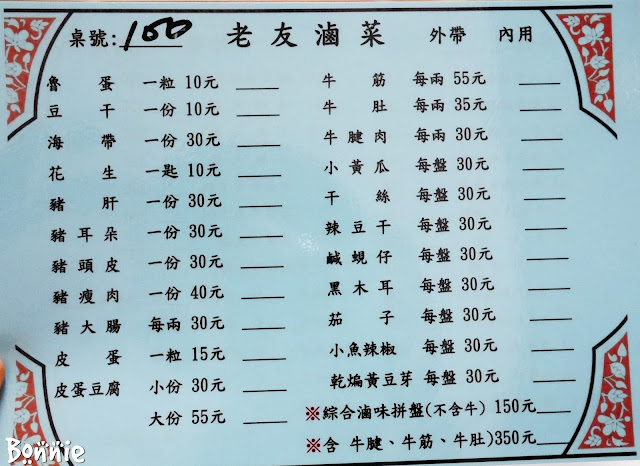 桌號:100 老友滷菜 外帶 內用
魯蛋 一粒 10元
豆干 一份 10元
海帶 一份 30元
花生 一匙 10元
豬肝 一份 30元
豬耳朵 一份 30元
豬頭皮 一份 30元
豬瘦肉 一份 40元
豬大腸 每兩 30元
皮蛋 一粒 15元
皮蛋豆腐 小份 30元
大份 55元
牛筋 每兩 55元
牛肚 每兩 35元
牛腱肉 每兩 30元
小黃瓜 每盤 30元
干絲 每盤 30元
辣豆干 每盤 30元
鹹蜆仔 每盤 30元
黑木耳 每盤 30元
茄子 每盤 30元
小魚辣椒 每盤 30元
乾煸黃豆芽 每盤 30元
※綜合滷味拼盤(不含牛) 150元
※含 牛腱、牛筋、牛肚)350元
Bonnie